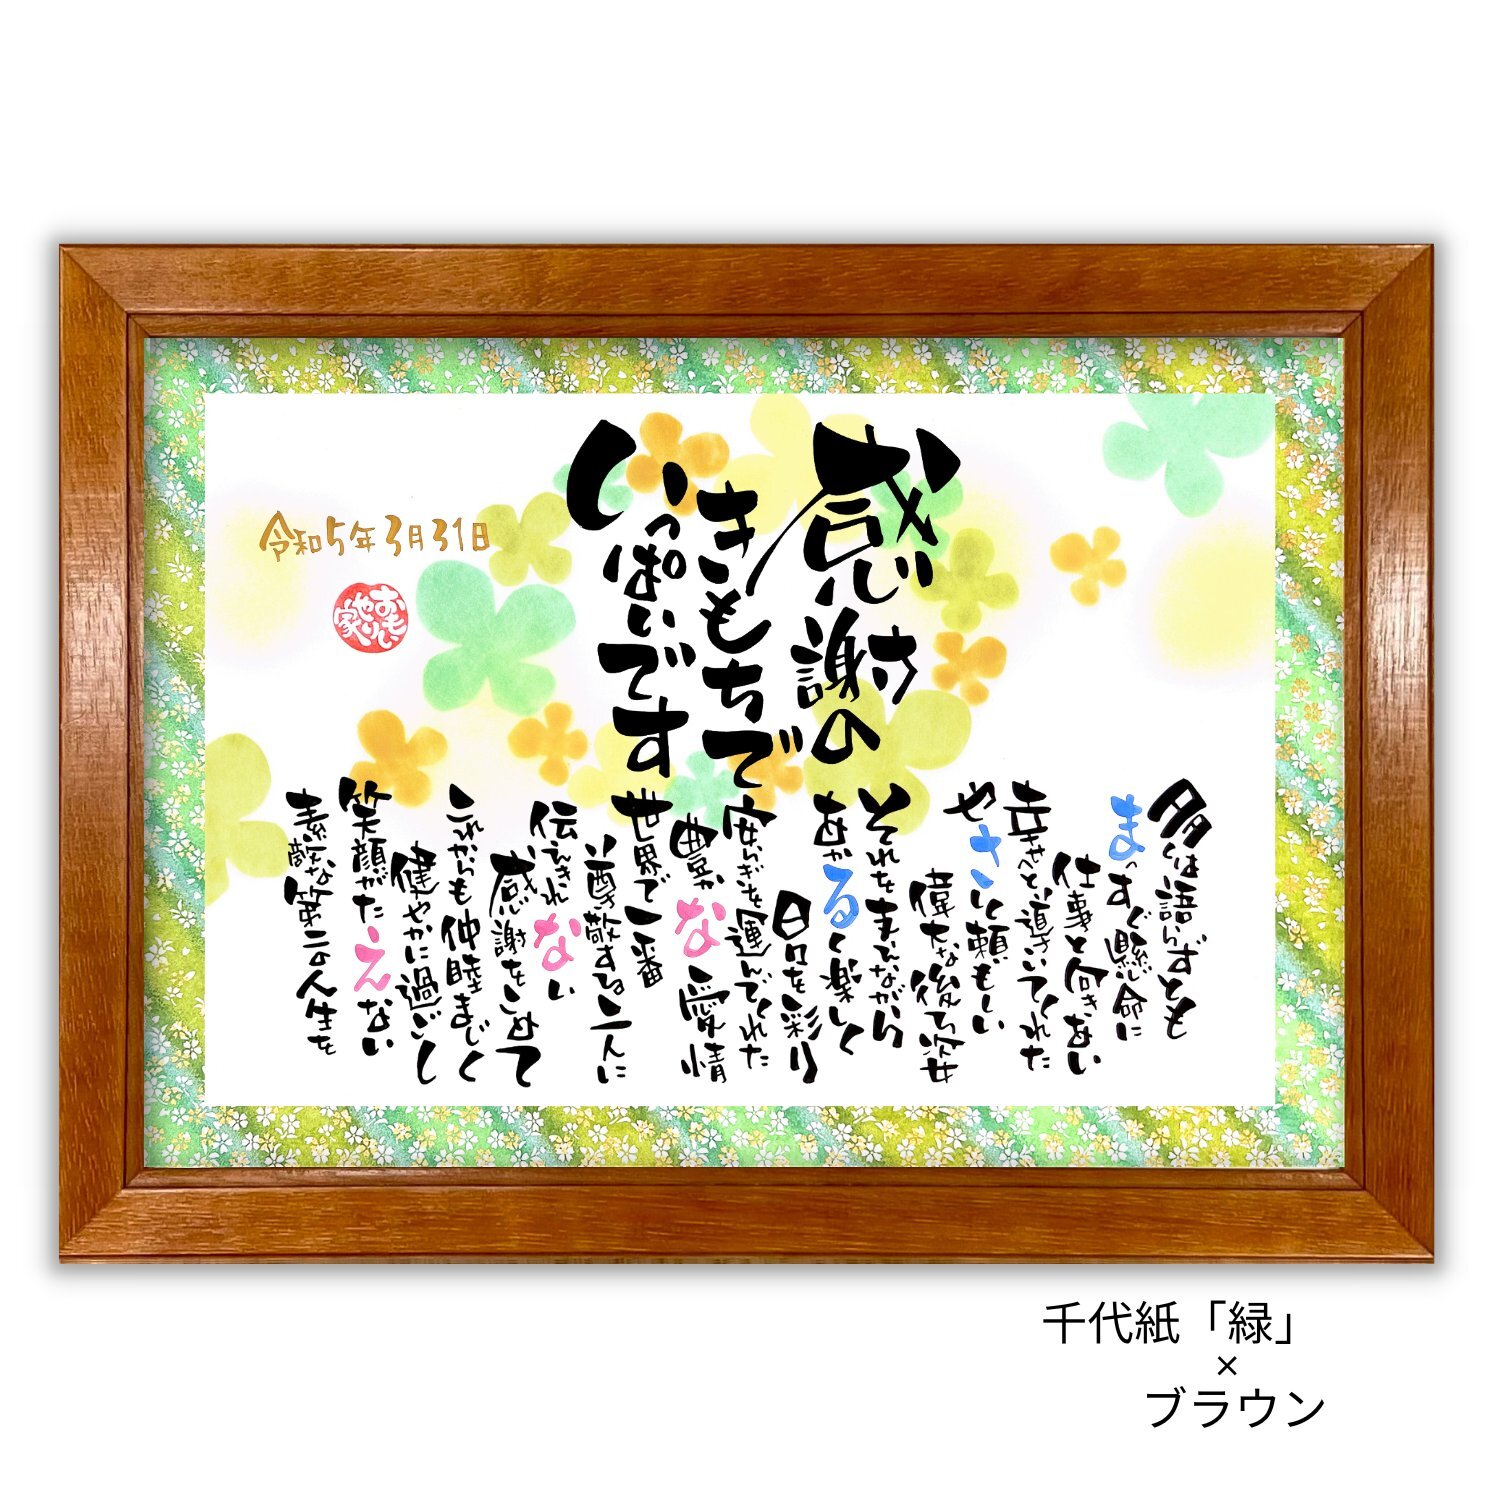 感謝の
きもちで
いっぱいです
多くは語らずとも
まっすぐ懸命に
仕事と向きあい
幸せへと導いてくれた
やさしく頼もしい
偉大な後ろ姿
それをまえながら
あかるく楽しく
日々を彩り
安らぎを運んでくれた
豊かな愛情
世界で一番
尊敬する二人に
伝えきれない
感謝をこめて
これからも仲睦まじく
健やかに過ごし
笑顔がたえない
素敵な第二の人生を
令和5年3月31日
おもいやり家
千代紙「緑」
×
ブラウン